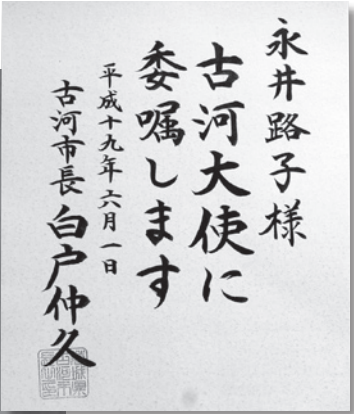 永井路子様
古河大使に
委嘱します
平成十九年六月一日
古河市長 白戸仲久